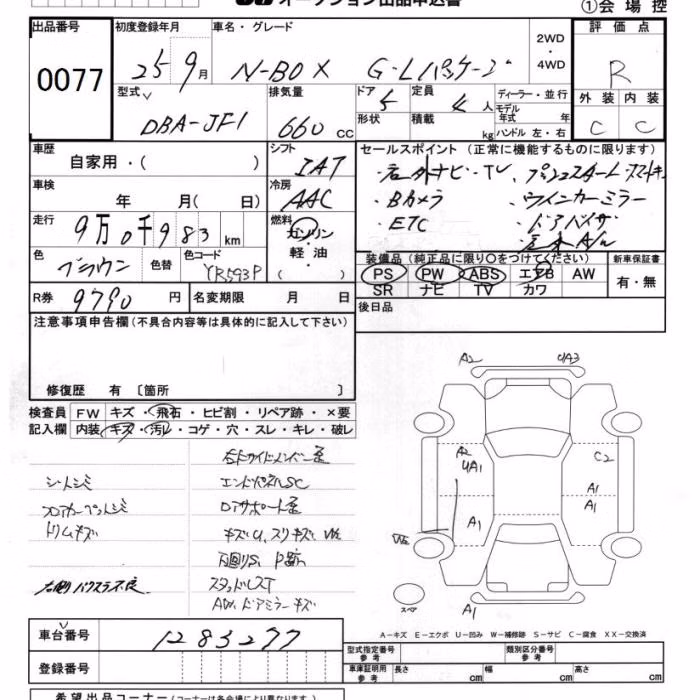 オークション出品申込書
①会場控
出品番号
0077
初度登録年月
25 9月
車名・グレード
N-BOX G・Lパッケージ
2WD
・
4WD
評価点
R
型式
DBA-JF1
排気量
660 cc
ドア
5
形状
定員
4人
積載
kg
ディーラー・並行
モデル年式 年
ハンドル 左・右
外装 内装
C C
車歴
自家用・( )
シフト
IAT
セールスポイント (正常に機能するものに限ります)
・ナビ・TV
・Bカメラ ・ウインカーミラー
・ETC ・ドアバイザー
車検
年 月( 日)
冷房
AAC
走行
9万0千983km
燃料
ガソリン
・
軽油
・
( )
色
ブラウン
色替
色コード
YR593P
装備品 (純正品に限り○をつけてください)
PS PW ABS エアB AW
SR ナビ TV カワ
新車保証書
有・無
R券 9790円
名変期限 月 日
後日品
注意事項申告欄(不具合内容等は具体的に記入して下さい)
修復歴 有 〔箇所 〕
検査員記入欄
FW キズ・飛石・ヒビ割・リペア跡・×要
内装 キズ・汚レ・コゲ・穴・スレ・キレ・破レ
右Fサイドメンバー歪
シートシミ
エンドパネルSC
フロアカーペットシミ
ロアサポート歪
トリムキズ
キズU、スリキズ、WE
スタッドレスT
AW、ドアミラーキズ
A2
UA3
A2
UA1
C2
A1
A1
A1
WE
スペア
A1
A-キズ E-エクボ U-凹み W-補修跡 S-サビ C-腐食 XX-交換済
車台番号
1283277
登録番号
型式指定番号 参考
類別区分番号 参考
車庫証明用 参考
長さ cm
幅 cm
高さ cm
希望出品コーナー